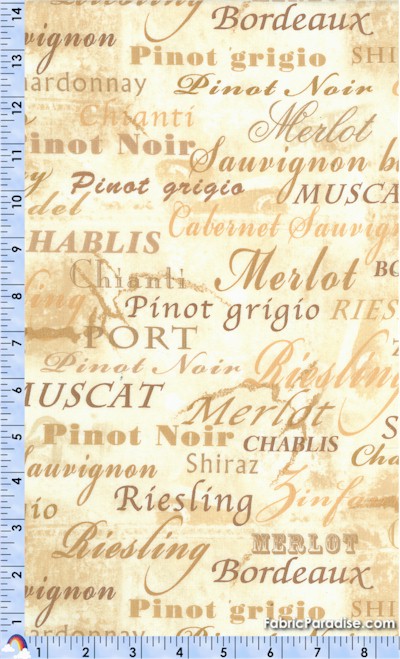 Bordeaux
vignon
Pinot grigio SHI
ardonnay Pinot Noir
Chianti Merlot
inot Noir
Sauvignon b
Pinot grigio MUSCA
del
Cabernet Sauvign
HABLIS
Chianti Merlot BO
ling Pinot grigio RIES
PORT
Pinot Noir Riesling
MUSCAT
Merlot
Pinot Noir CHABLIS S
auvignon Shiraz Cha
io Riesling Zinfa
Riesling MERLOT
vignon Bordeaux
Pinot grigio
FabricParadise.com
14
13
12
11
10
9
8
7
6
5
4
3
2
1
1 2 3 4 5 6 7 8